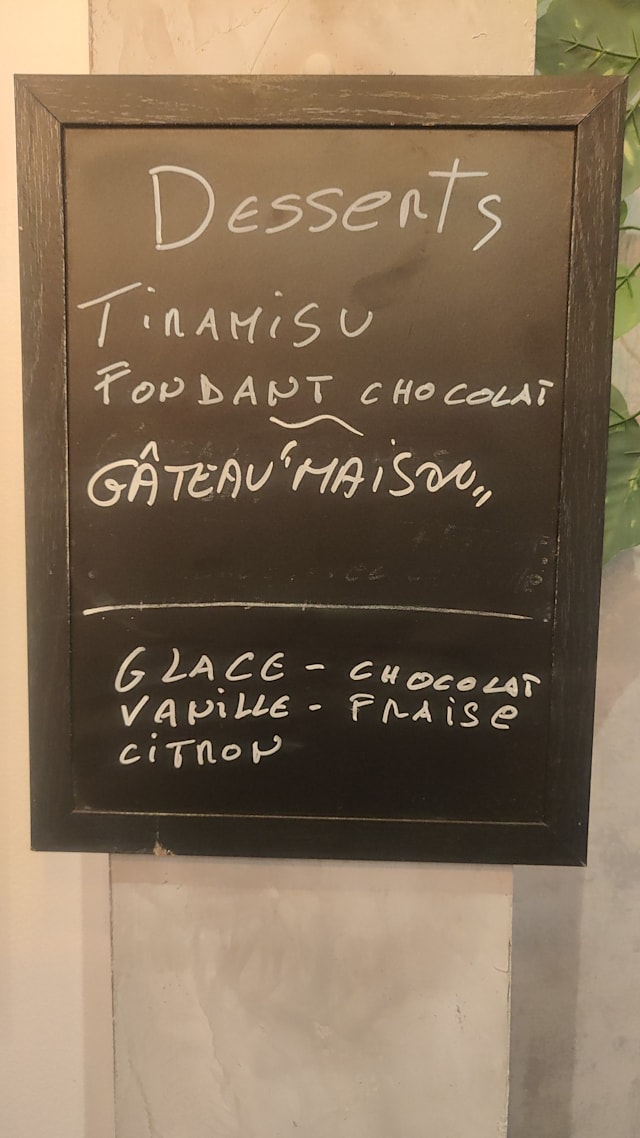 Desserts
TiRAMiSU
FONDANT CHOCOLAT
GÂTEAU "MAiSON"
GLACE - CHOCOLAT
VANiLLE - FRAiSe
CiTRON